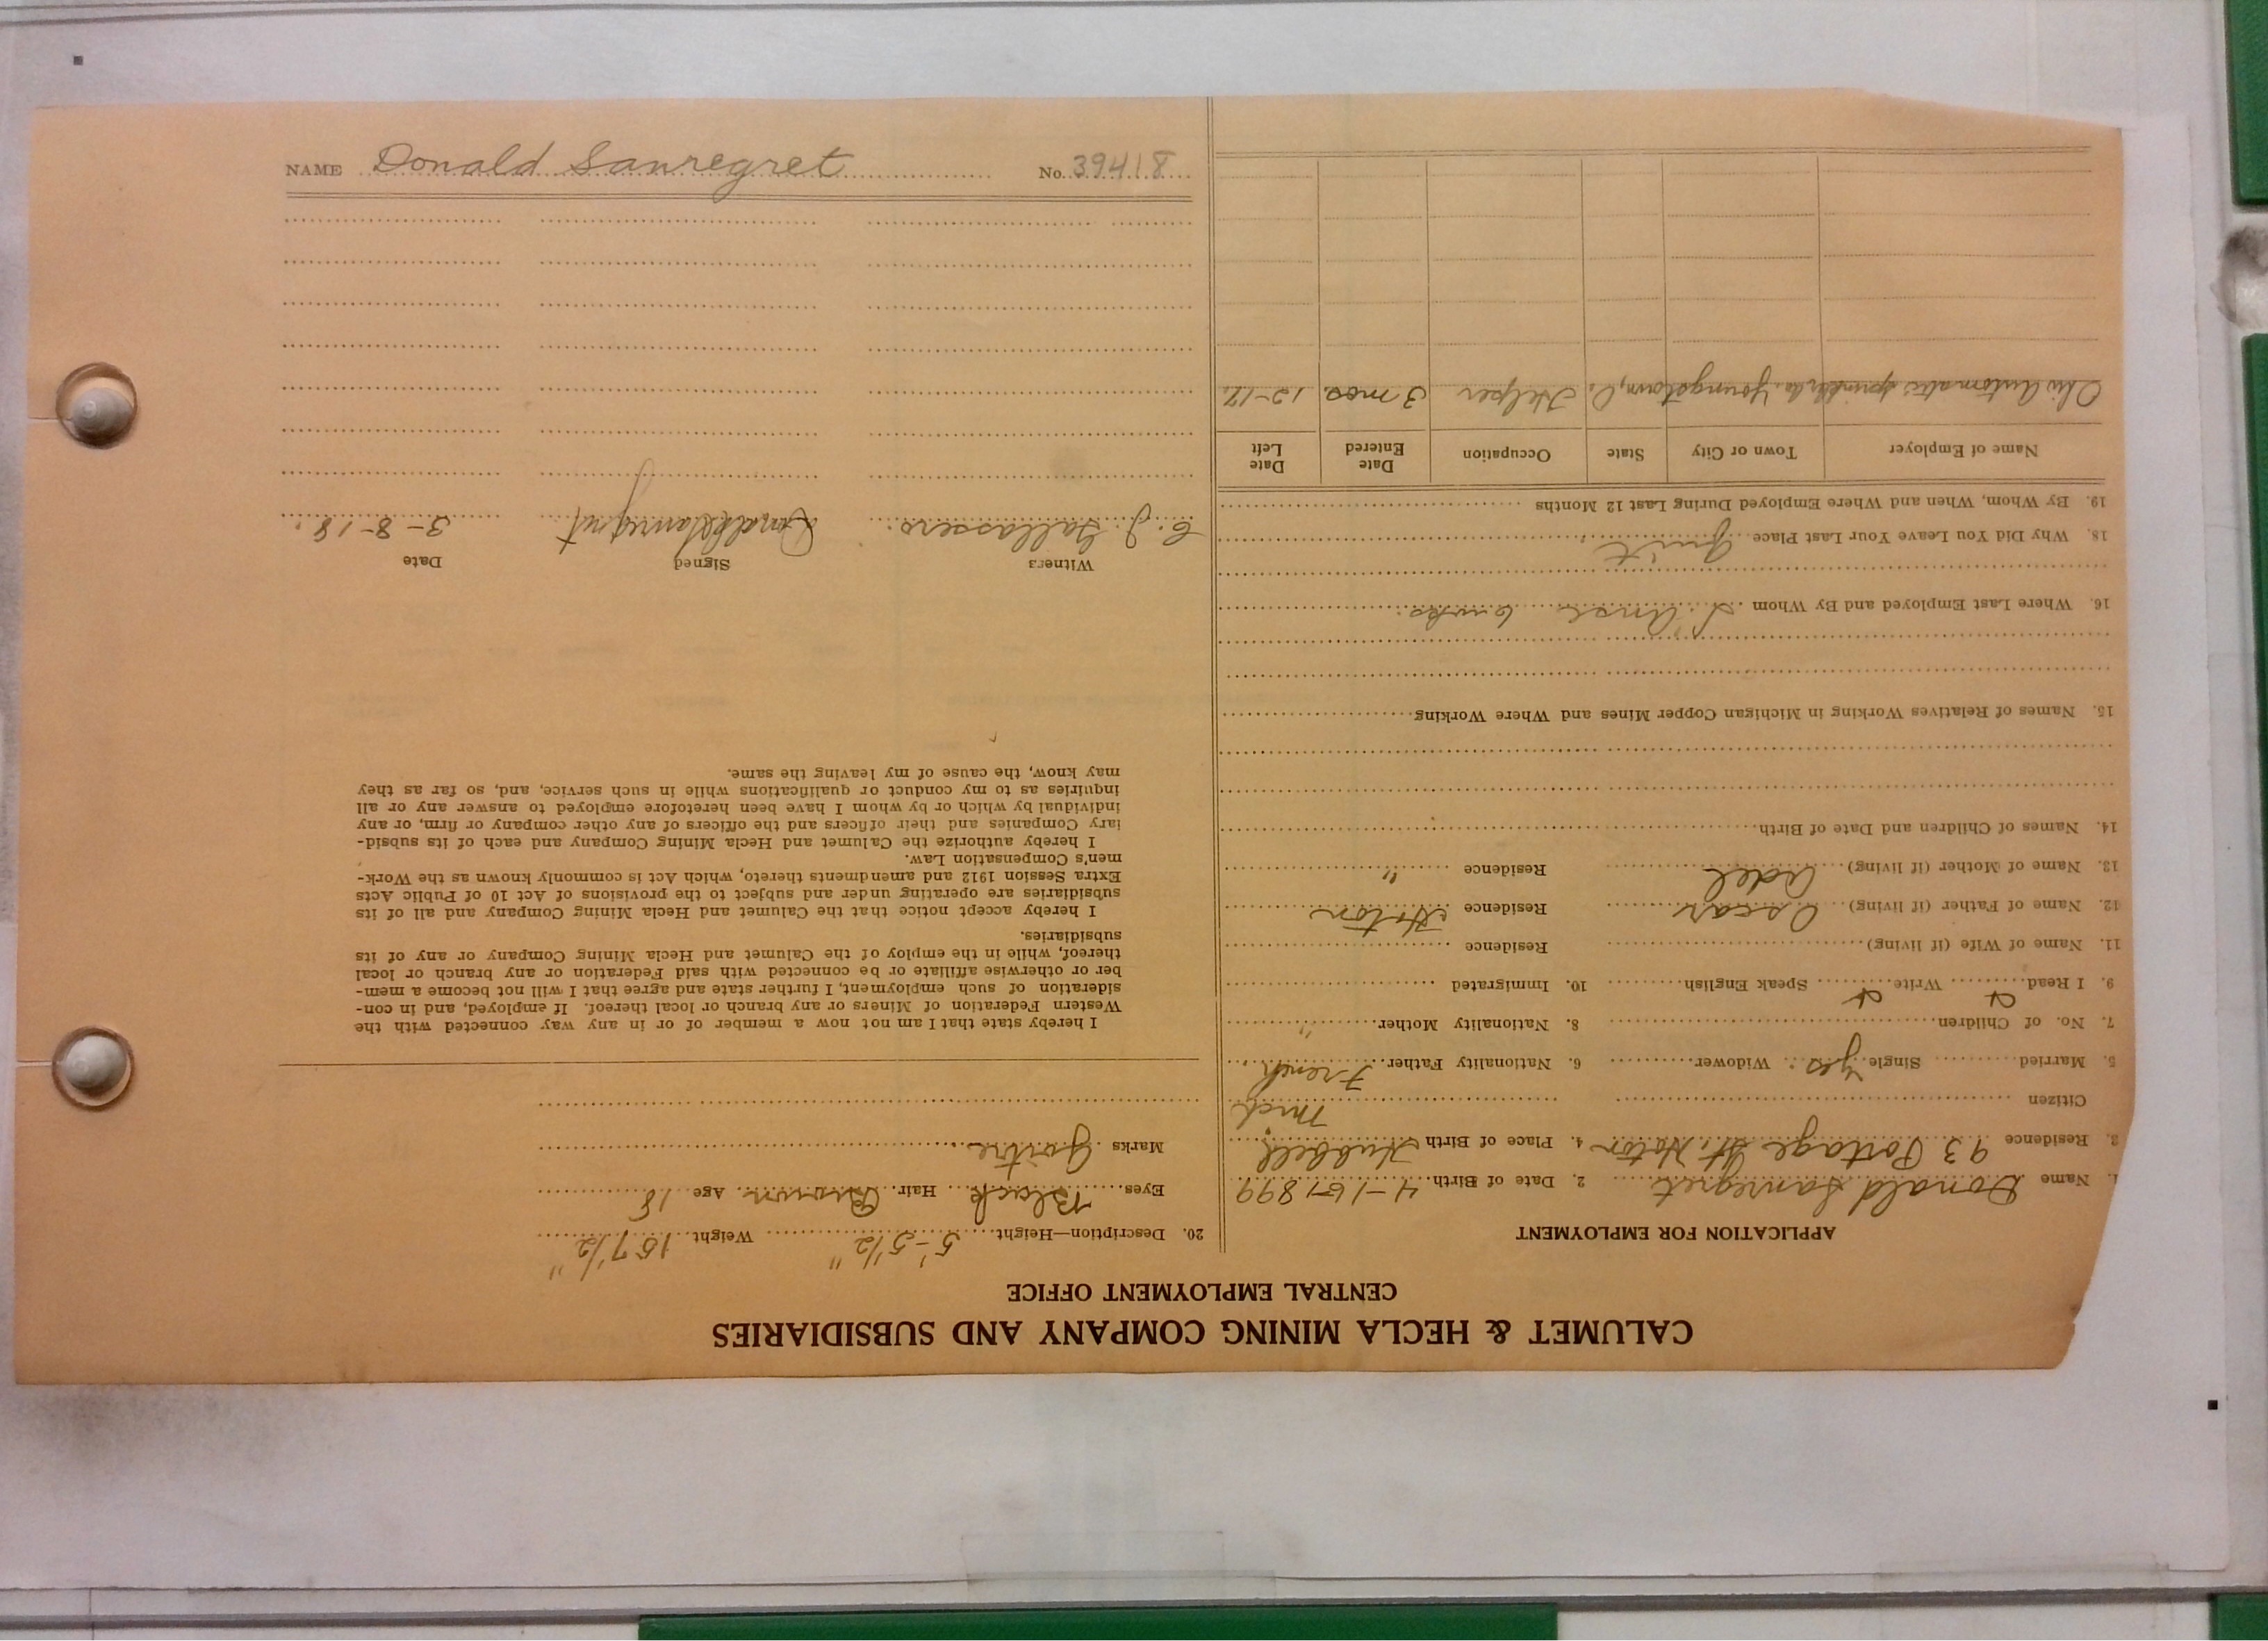 CALUMET & HECLA MINING COMPANY AND SUBSIDIARIES
CENTRAL EMPLOYMENT OFFICE
APPLICATION FOR EMPLOYMENT
1. Name Donald Sanregret 2. Date of Birth 4-15-1899
3. Residence 93 Portage St. Hoton 4. Place of Birth Hubbell
Citizen Mich
5. Married Single yes Widower 6. Nationality Father French
7. No. of Children 8. Nationality Mother "
9. I Read Write Speak English 10. Immigrated
11. Name of Wife (if living) Residence
12. Name of Father (if living) Oscar Residence Hoton
13. Name of Mother (if living) Adel Residence "
14. Names of Children and Date of Birth
15. Names of Relatives Working in Michigan Copper Mines and Where Working
16. Where Last Employed and By Whom L'Anse 6 wks.
18. Why Did You Leave Your Last Place Quit
19. By Whom, When and Where Employed During Last 12 Months
Name of Employer Town or City State Occupation Date Entered Date Left
Automatic Sprinkler Co. Youngstown, O. Helper 3 mos. 12-17.
20. Description—Height 5'-5 1/2" Weight 157 1/2"
Eyes Black Hair Brown Age 18
Marks Goitre
I hereby state that I am not now a member of or in any way connected with the
Western Federation of Miners or any branch or local thereof. If employed, and in con-
sideration of such employment, I further state and agree that I will not become a mem-
ber or otherwise affiliate or be connected with said Federation or any branch or local
thereof, while in the employ of the Calumet and Hecla Mining Company or any of its
subsidiaries.
I hereby accept notice that the Calumet and Hecla Mining Company and all of its
subsidiaries are operating under and subject to the provisions of Act 10 of Public Acts
Extra Session 1912 and amendments thereto, which Act is commonly known as the Work-
men's Compensation Law.
I hereby authorize the Calumet and Hecla Mining Company and each of its subsid-
iary Companies and their officers and the officers of any other company or firm, or any
individual by which or by whom I have been heretofore employed to answer any or all
inquiries as to my conduct or qualifications while in such service, and, so far as they
may know, the cause of my leaving the same.
Witness Signed Date
C. J. Gallassero. Donald Sanregret 3-8-18.
NAME Donald Sanregret No. 39418